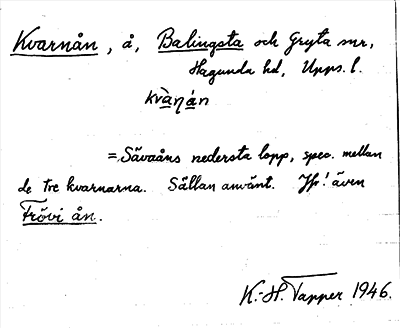 Kvarnån, å, Balingsta och Gryta snr,
Hagunda hd, Upps. l.
kvànán
= Sävaåns nedersta lopp, spec. mellan
de tre kvarnarna. Sällan använt. Jfr! även
Frövi ån.
K.-H. Tapper 1946.